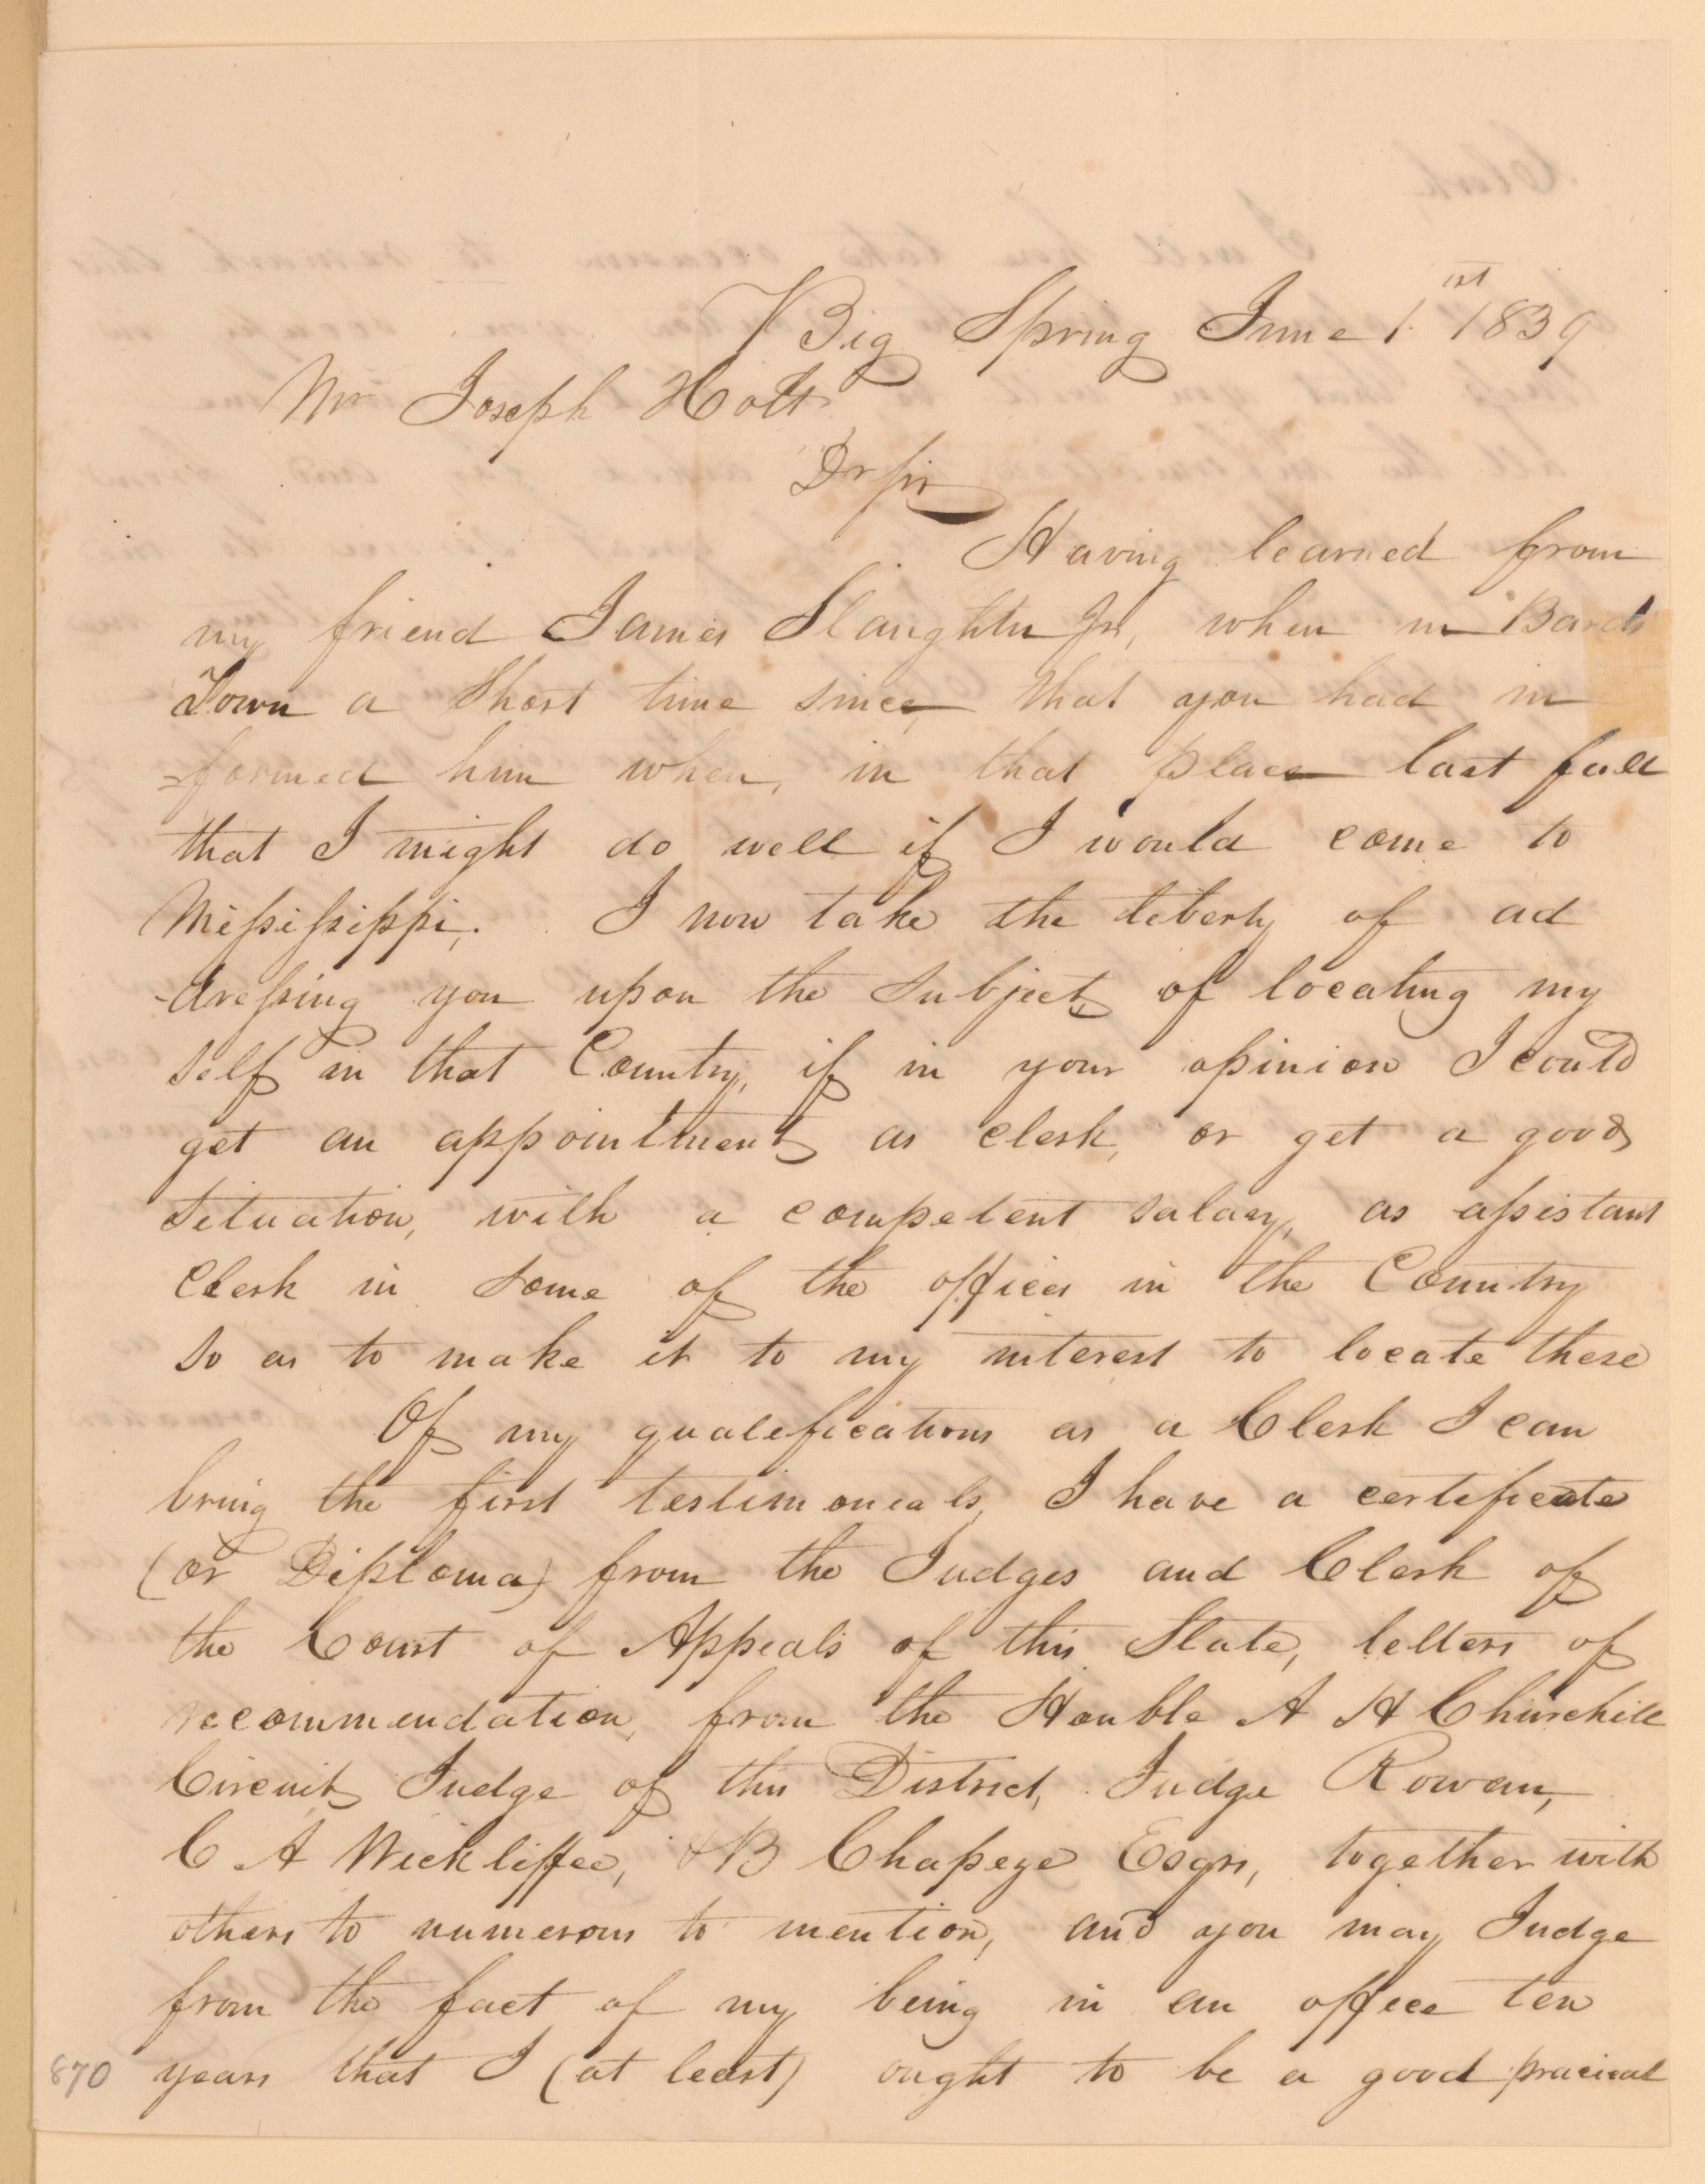 Big Spring June 1st 1839
Mr Joseph Holt
Dr Sir
Having learned from
my friend James Slaughter Jr, when in Bards
Town a Short time since, that you had in
=formed him when, in that place last fall
that I might do well if I would come to
Missississippi. I now take the liberty of ad
-dressing you upon the Subject, of locating my
self in that Country, if in your opinion I could
get an appointment as clerk, or get a good
Situation, with a competent salary, as assistant
Clerk in some of the offices in the Country
so as to make it to my interest to locate there
Of my qualefications as a Clerk I can
bring the first testimoneals, I have a certeficate
(or Diploma) from the Judges and Clerk of
the Court of Appeals of this State, letters of
recommendation, from the Honble A H Churchill
Circuit Judge of this District, Judge Rowan,
C A Wickliffee, & B Chapeze Esqrs, together with
others to numerous to mention, and you may Judge
from the fact of my being in an office ten
870 years that I (at least) ought to be a good pracical